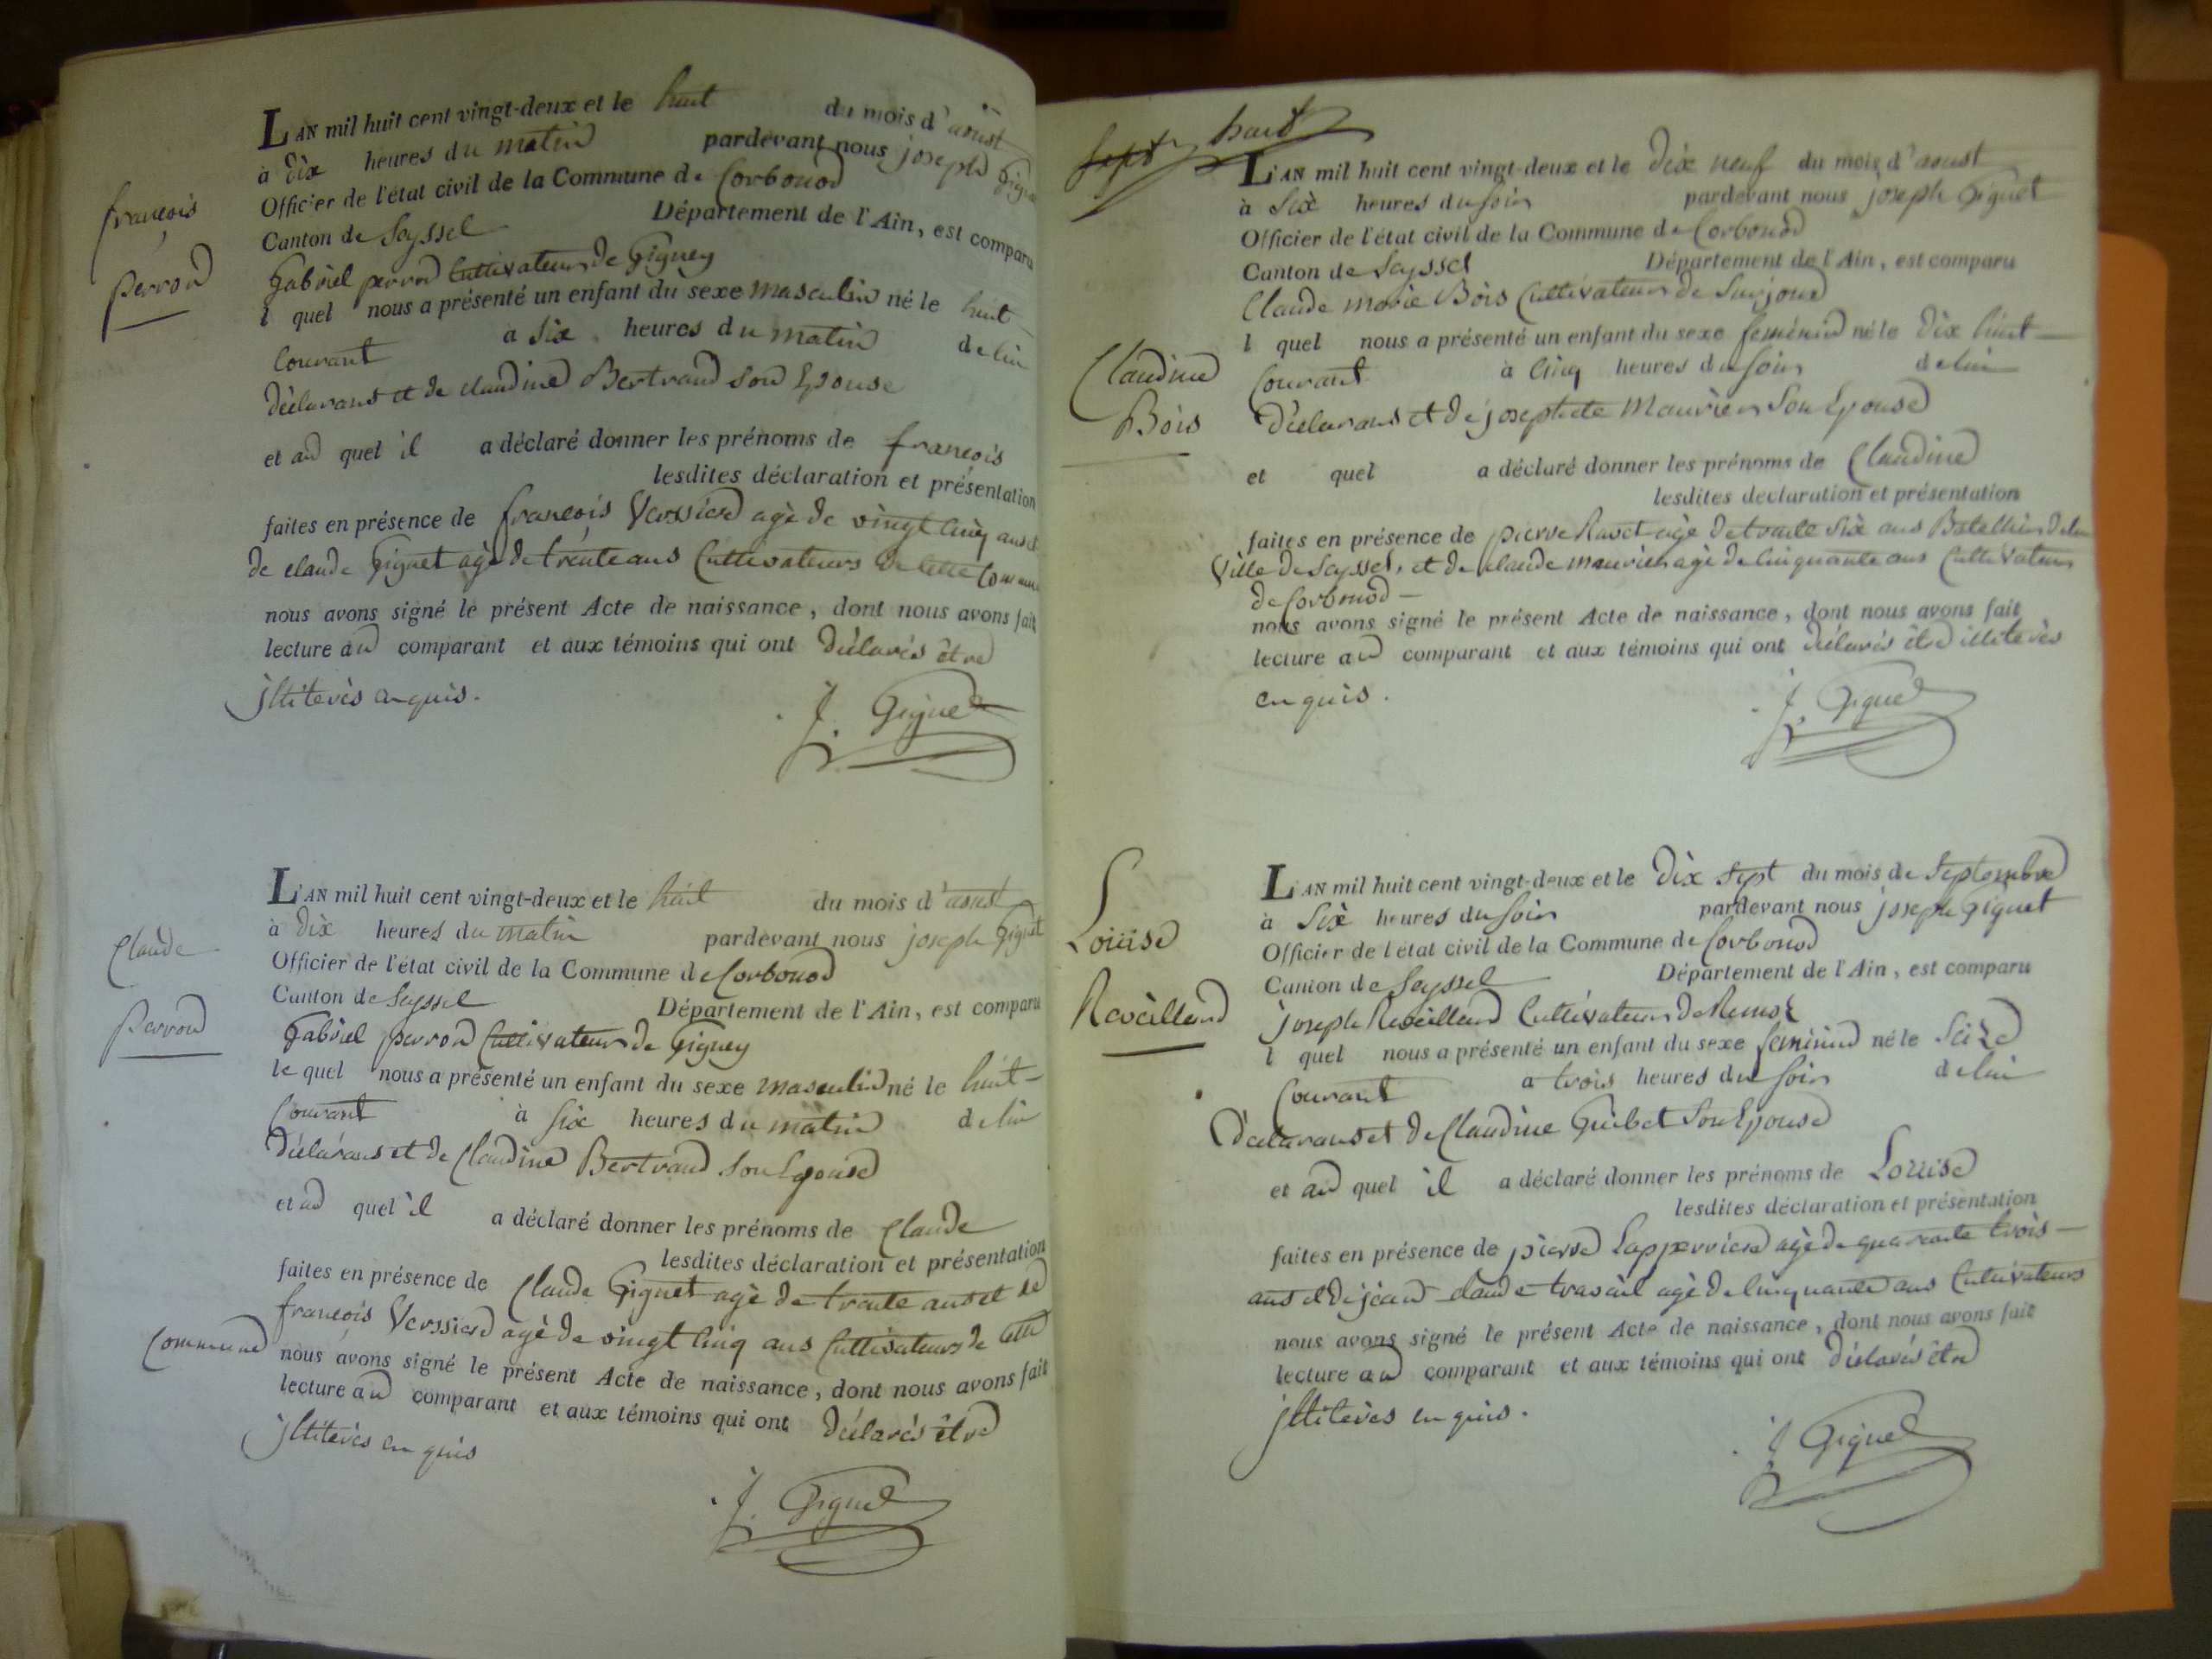 françois
perron
L'AN mil huit cent vingt-deux et le huit du mois d'aoust
à dix heures du matin pardevant nous joseph Gignet
Officier de l'état civil de la Commune de Corbonod
Canton de Seyssel Département de l'Ain, est comparu
Gabriel perron Cultivateur de Gigney
l quel nous a présenté un enfant du sexe masculin né le huit
Courant à six heures du matin de lui
déclarant et de claudine Bertrand son Epouse
et au quel il a déclaré donner les prénoms de françois
lesdites déclaration et présentation
faites en présence de françois Verssier agè de vingt cinq ans et
de claude Gignet agè de trente ans Cultivateurs de cette Commune
nous avons signé le présent Acte de naissance, dont nous avons fait
lecture au comparant et aux témoins qui ont déclarés être
jlliterès enquis.
J. Gignet
Claude
Perron
L'AN mil huit cent vingt-deux et le huit du mois d'aoust
à dix heures du matin pardevant nous joseph Gignet
Officier de l'état civil de la Commune de Corbonod
Canton de Seyssel Département de l'Ain, est comparu
Gabriel perron Cultivateur de Gigney
le quel nous a présenté un enfant du sexe masculin né le huit
Courant à six heures du matin de lui
déclarant et de Claudine Bertrand son Epouse
et au quel il a déclaré donner les prénoms de Claude
lesdites déclaration et présentation
faites en présence de Claude Gignet agè de trente ans et de
françois Verssier agè de vingt cinq ans Cultivateurs de cette
Commune nous avons signé le présent Acte de naissance, dont nous avons fait
lecture au comparant et aux témoins qui ont déclarés être
jlliterès enquis
J. Gignet
sept huit
L'AN mil huit cent vingt-deux et le dix neuf du mois d'aoust
à six heures du soir pardevant nous joseph Gignet
Officier de l'état civil de la Commune de Corbonod
Canton de Seyssel Département de l'Ain, est comparu
Claude marie Bois Cultivateur de Surjoux
l quel nous a présenté un enfant du sexe feminin né le dix huit
Claudine
Bois
Courant à cinq heures du soir de lui
déclarant et de josephete Maurier son Epouse
et quel a déclaré donner les prénoms de Claudine
lesdites declaration et présentation
faites en présence de pierre Ravet agè de trente six ans Batellier de la
Ville de Seyssel, et de claude maurier agè de cinquante ans Cultivateur
de Corbonod
nous avons signé le présent Acte de naissance, dont nous avons fait
lecture au comparant et aux témoins qui ont déclarés être illiterès
enquis.
J. Gignet
Louise
Reveilland
L'AN mil huit cent vingt-deux et le dix sept du mois de Septembre
à six heures du soir pardevant nous joseph Gignet
Officier de l'état civil de la Commune de Corbonod
Canton de Seyssel Département de l'Ain, est comparu
joseph Reveilland Cultivateur de Remoz
l quel nous a présenté un enfant du sexe feminin né le seize
Courant à trois heures du soir de lui
déclarant et de Claudine Guibet son Epouse
et au quel il a déclaré donner les prénoms de Louise
lesdites déclaration et présentation
faites en présence de pierre Lapperriere agè de quarante trois
ans et de jean claude travail agè de cinquante ans Cultivateurs
nous avons signé le présent Acte de naissance, dont nous avons fait
lecture au comparant et aux témoins qui ont déclarés être
jlliterès enquis.
J. Gignet